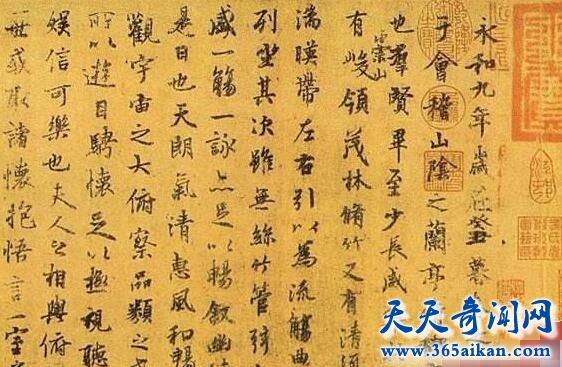 永和九年歲在癸丑暮
于會稽山陰之蘭亭
也羣賢畢至少長咸
有崇山峻領茂林脩竹又有清流
湍暎帶左右引以為流觴曲
列坐其次雖無絲竹管弦
盛一觴一詠亦足以暢敘幽
是日也天朗氣清惠風和暢
觀宇宙之大俯察品類之
所以遊目騁懷足以極視聽
娛信可樂也夫人之相與俯
一世或取諸懷抱悟言一室
天天奇闻网
www.365aikan.com